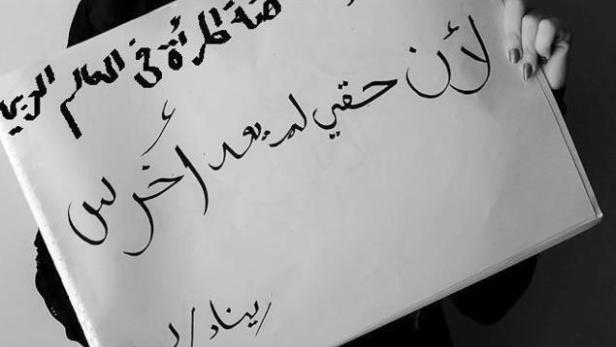 المرأة في العالم العربي
لأن حقي لم يعد أخرس
ريناد